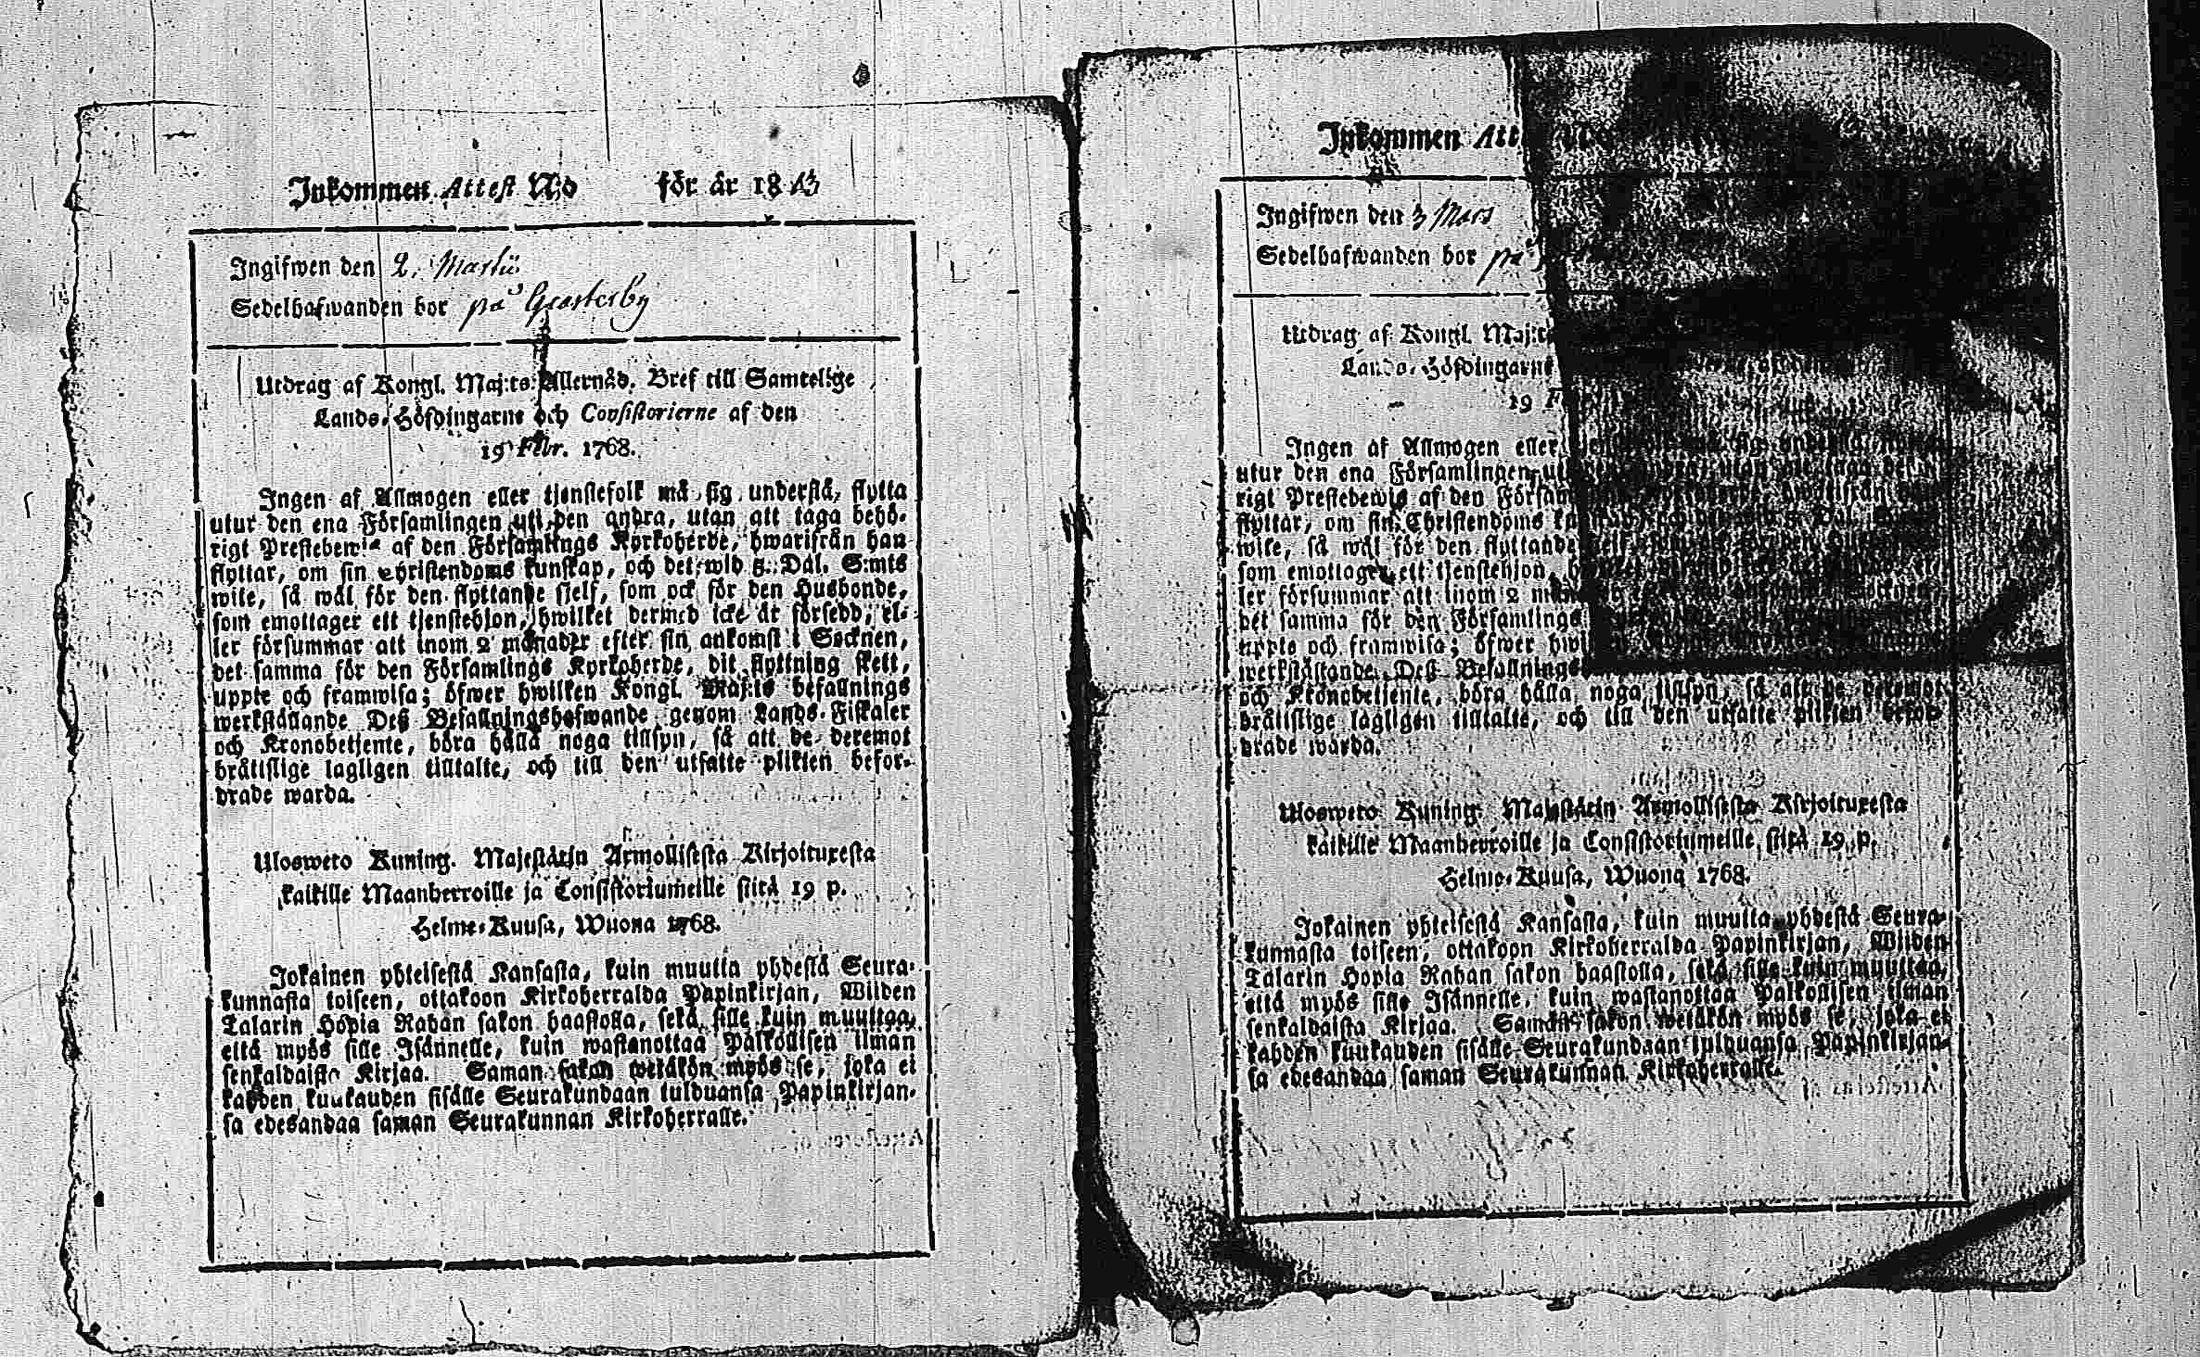 Inkommen Attest No för år 1813
Ingifwen den 2. Martii
Sedelhafwanden bor på
Utdrag af Kongl. Maj:ts Allernåd. Bref till Samtelige
Lands-Höfdingarne och Consistorierne af den
19 Febr. 1768.
Ingen af Allmogen eller tjenstefolk må sig understå, flytta
utur den ena Församlingen uti den andra, utan att taga behö-
rigt Prestebewis af den Församlings Kyrkoherde, hwarifrån han
flyttar, om sin Christendoms kunskap, och det wid 5. Dal. S:mts
wite, så wäl för den flyttande sjelf, som ock för den Husbonde,
som emottager ett tjenstehjon, hwilket dermed icke är försedd, el-
ler försummar att inom 2 månader efter sin ankomst i Socknen,
det samma för den Församlings Kyrkoherde, dit flyttning skett,
uppte och framwisa; öfwer hwilken Kongl. Maj:ts befallnings
werkställande Deß Befallningshafwande genom Lands-Fiskaler
och Kronobetjente, böra hålla noga tillsyn, så att de deremot
bråttslige lagligen tilltalte, och till den utsatte plikten befor-
drade warda.
Uloswets Kuning. Majestätin Armollisesta Kirjoituxesta
kaikille Maanherroille ja Consistoriumeille siitä 19 p.
Helme-Kuusa, Wuona 1768.
Jokainen yhteisestä Kansasta, kuin muutta yhdestä Seura-
kunnasta toiseen, ottakoon Kirkoherralda Papinkirjan, Wiiden
Talarin Hopia Rahan sakon haastolla, sekä sille kuin muuttaa,
että myös sille Isännelle, kuin wastanottaa Palkollisen ilman
senkaldaista Kirjaa. Saman sakon wetäkön myös se, joka ei
kahden kuukauden sisälle Seurakundaan tulduansa Papinkirjan-
sa edesandaa saman Seurakunnan Kirkoherralle.
Inkommen
Ingifwen den 3 Mars
Sedelhafwanden bor på
Utdrag af Kongl. Maj:ts
Lands-Höfdingarne
19
Ingen af Allmogen eller
utur den ena Församlingen
rigt Prestebewis af den
flyttar, om sin Christendoms
wite, så wäl för den flyttande
som emottager ett tjenstehjon,
ler försummar att inom 2
det samma för den Församlings
uppte och framwisa; öfwer
werkställande Deß Befallnings
och Kronobetjente, böra hålla noga tillsyn, så att de deremot
bråttslige lagligen tilltalte, och till den utsatte plikten befor-
drade warda.
Uloswets Kuning. Majestätin Armollisesta Kirjoituxesta
kaikille Maanherroille ja Consistoriumeille siitä 19 p.
Helme-Kuusa, Wuona 1768.
Jokainen yhteisestä Kansasta, kuin muutta yhdestä Seura-
kunnasta toiseen, ottakoon Kirkoherralda Papinkirjan, Wiiden
Talarin Hopia Rahan sakon haastolla, sekä sille kuin muuttaa,
että myös sille Isännelle, kuin wastanottaa Palkollisen ilman
senkaldaista Kirjaa. Saman sakon wetäkön myös se, joka ei
kahden kuukauden sisälle Seurakundaan tulduansa Papinkirjan-
sa edesandaa saman Seurakunnan Kirkoherralle.